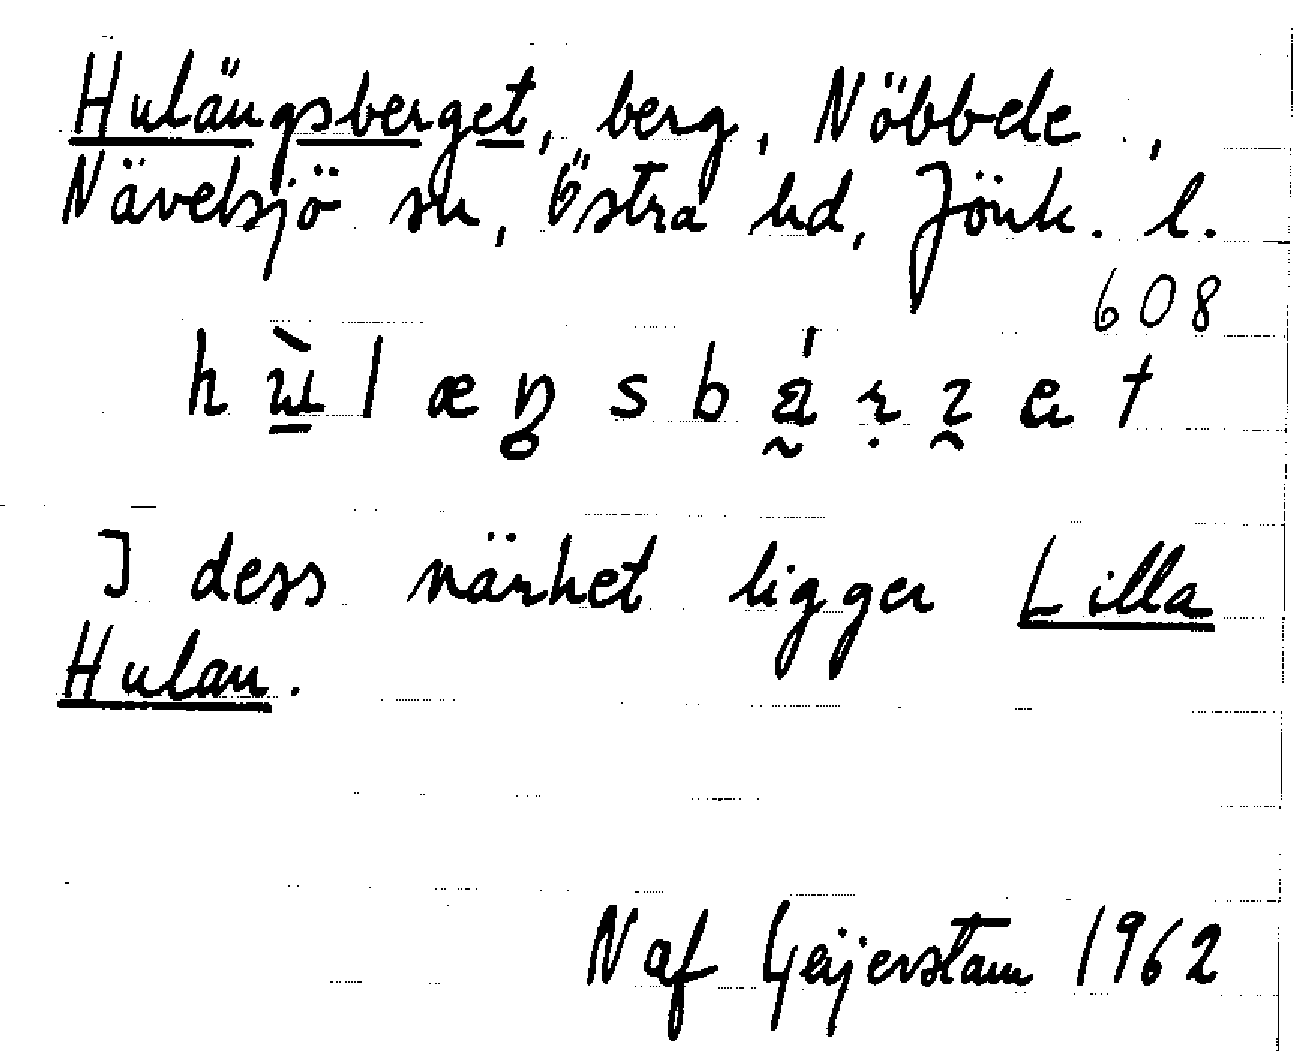 Hulängsberget, berg, Nöbbele,
Nävelsjö sn, Östra hd, Jönk. l.
608
I dess närhet ligger Lilla
Hulan.
N af Geijerstam 1962